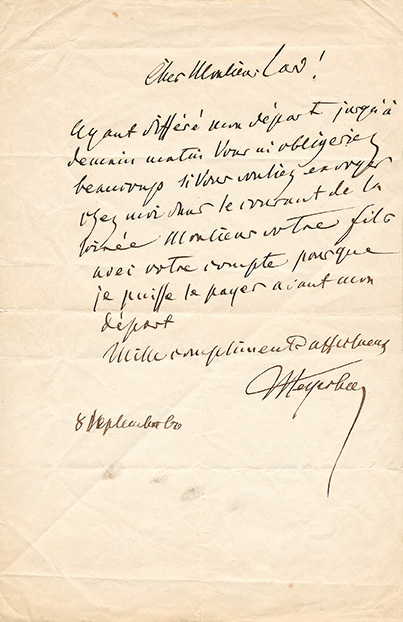 Cher Monsieur Card!
Ayant différé mon départ jusqu'à
demain matin Vous m'obligeriez
beaucoup si Vous vouliez envoyer
chez moi dans le courant de la
soirée Monsieur votre fils
avec votre compte pour que
je puisse le payer avant mon
départ
Mille compliments affectueux
Meyerbeer
8 Septembre 60